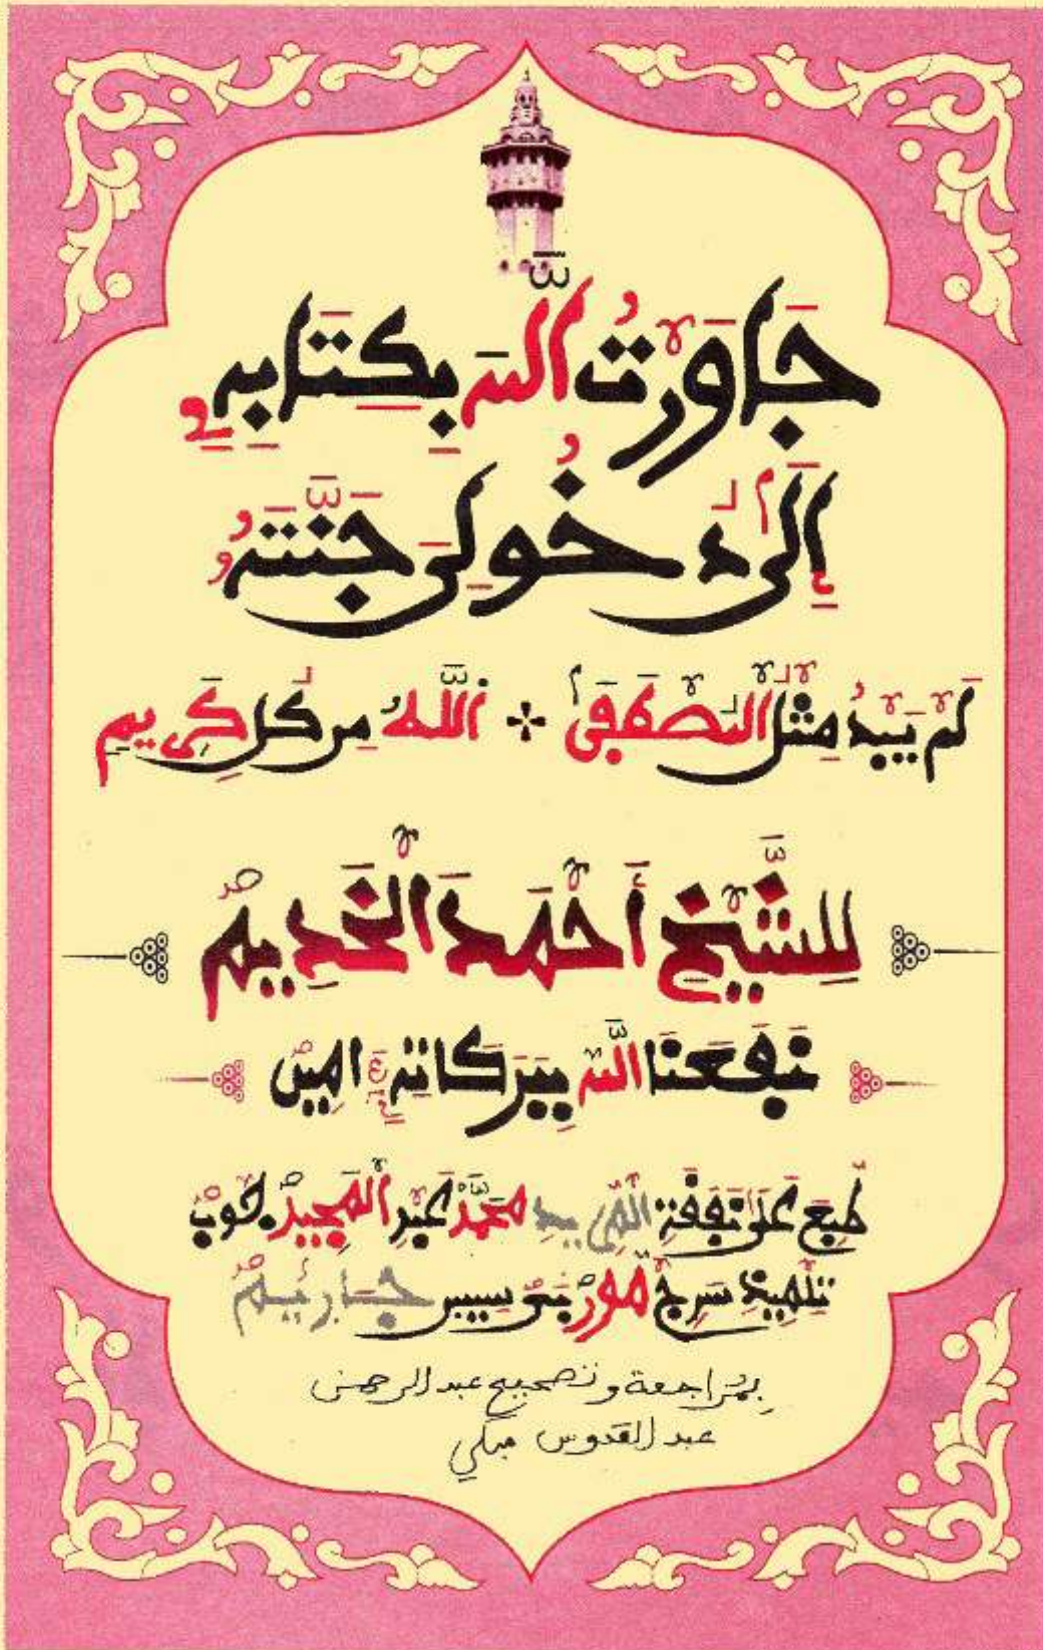 جَاوَرْتُ اللَّهَ بِكِتَابِهِ
إِلَى دُخُولِي جَنَّتَهُ
لَمْ يَبْدُ مِثْلُ الْمُصْطَفَى + اللَّهُ مِن كُلِّ كَرِيمِ
لِلشَّيْخِ أَحْمَدَ الْخَدِيمْ
نَفَعَنَا اللَّهُ بِبَرَكَاتِهِ امِينْ
طُبِعَ عَلَى نَفَقَةِ الْمُرِيدِ مُحَمَّدْ عَبْدِ الْمَجِيدْ جُوبْ
تِلْمِيذِ سَرِجْ مُورْ سيس جاريم
بمراجعة وتصحيح عبد الرحمن
عبد القدوس مبكي